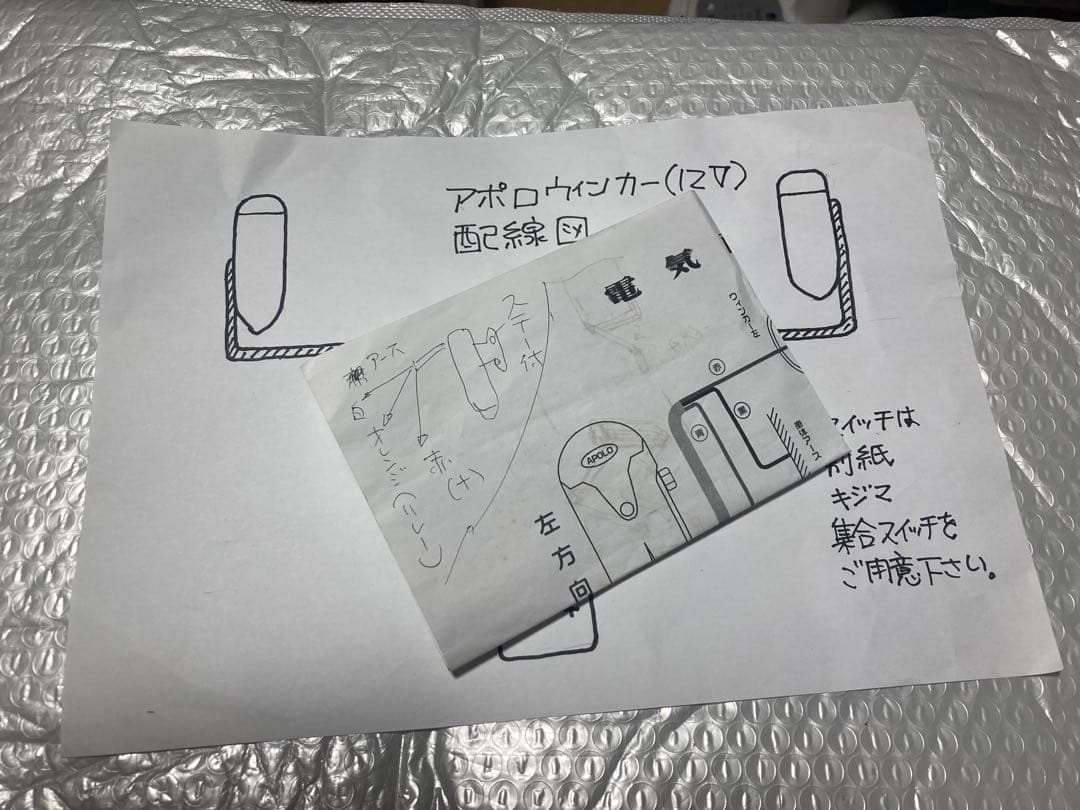 アポロウィンカー(12V)
配線図
電気
ステー付
アース
白
オレンジ(リレー)
赤
(+)
APOLO
左方向
車体アース
スイッチは
別紙
キジマ
集合スイッチを
ご用意下さい。